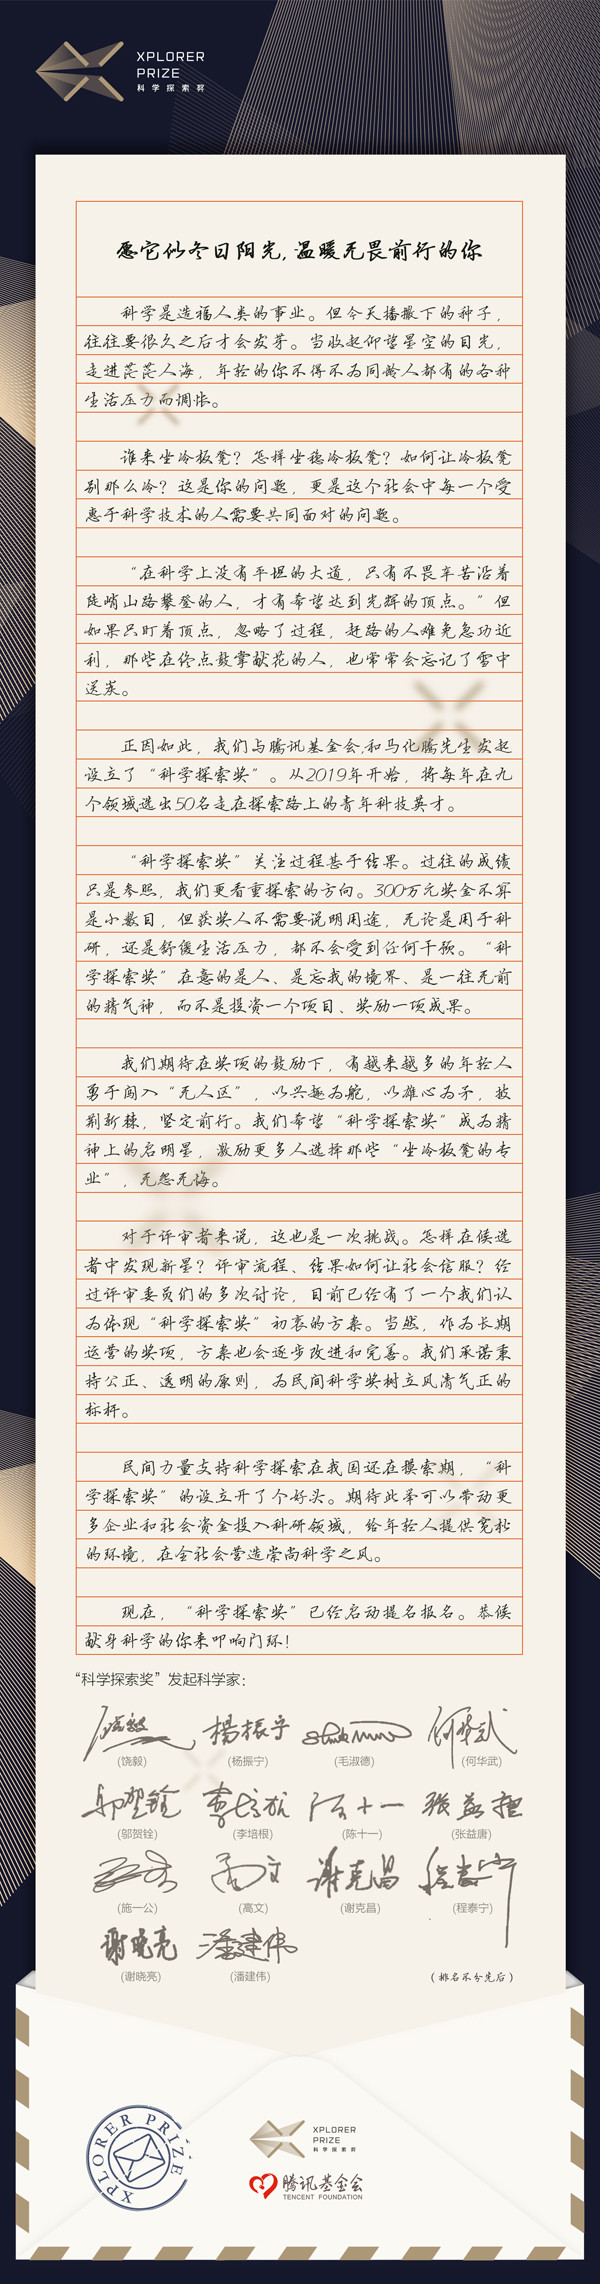 XPLORER
PRIZE
科学探索奖
愿它似冬日阳光，温暖无畏前行的你
科学是造福人类的事业。但今天播撒下的种子，
往往要很久之后才会发芽。当收起仰望星空的目光，
走进茫茫人海，年轻的你不得不为同龄人都有的各种
生活压力而惆怅。
谁来坐冷板凳？怎样坐稳冷板凳？如何让冷板凳
别那么冷？这是你的问题，更是这个社会中每一个受
惠于科学技术的人需要共同面对的问题。
“在科学上没有平坦的大道，只有不畏辛苦沿着
陡峭山路攀登的人，才有希望达到光辉的顶点。”但
如果只盯着顶点，忽略了过程，赶路的人难免急功近
利，那些在终点鼓掌献花的人，也常常会忘记了雪中
送炭。
正因如此，我们与腾讯基金会和马化腾先生发起
设立了“科学探索奖”。从2019年开始，将每年在九
个领域选出50名走在探索路上的青年科技英才。
“科学探索奖”关注过程甚于结果。过往的成绩
只是参照，我们更看重探索的方向。300万元奖金不算
是小数目，但获奖人不需要说明用途，无论是用于科
研，还是舒缓生活压力，都不会受到任何干预。“科
学探索奖”在意的是人、是忘我的境界、是一往无前
的精气神，而不是投资一个项目、奖励一项成果。
我们期待在奖项的鼓励下，有越来越多的年轻人
勇于闯入“无人区”，以兴趣为舵，以雄心为矛，披
荆斩棘，坚定前行。我们希望“科学探索奖”成为精
神上的启明星，激励更多人选择那些“坐冷板凳的专
业”，无怨无悔。
对于评审者来说，这也是一次挑战。怎样在候选
者中发现新星？评审流程、结果如何让社会信服？经
过评审委员们的多次讨论，目前已经有了一个我们认
为体现“科学探索奖”初衷的方案。当然，作为长期
运营的奖项，方案也会逐步改进和完善。我们承诺秉
持公正、透明的原则，为民间科学奖树立风清气正的
标杆。
民间力量支持科学探索在我国还在摸索期，“科
学探索奖”的设立开了个好头。期待此举可以带动更
多企业和社会资金投入科研领域，给年轻人提供宽松
的环境，在全社会营造崇尚科学之风。
现在，“科学探索奖”已经启动提名报名。恭候
献身科学的你来叩响门环！
“科学探索奖”发起科学家：
饶毅 杨振宁 何华武
(饶毅) (杨振宁) (毛淑德) (何华武)
邬贺铨 李培根 陈十一 张益唐
(邬贺铨) (李培根) (陈十一) (张益唐)
高文 谢克昌 程泰宁
(施一公) (高文) (谢克昌) (程泰宁)
谢晓亮 潘建伟
(谢晓亮) (潘建伟) (排名不分先后)
XPLORER PRIZE
XPLORER
PRIZE
科学探索奖
腾讯基金会
TENCENT FOUNDATION